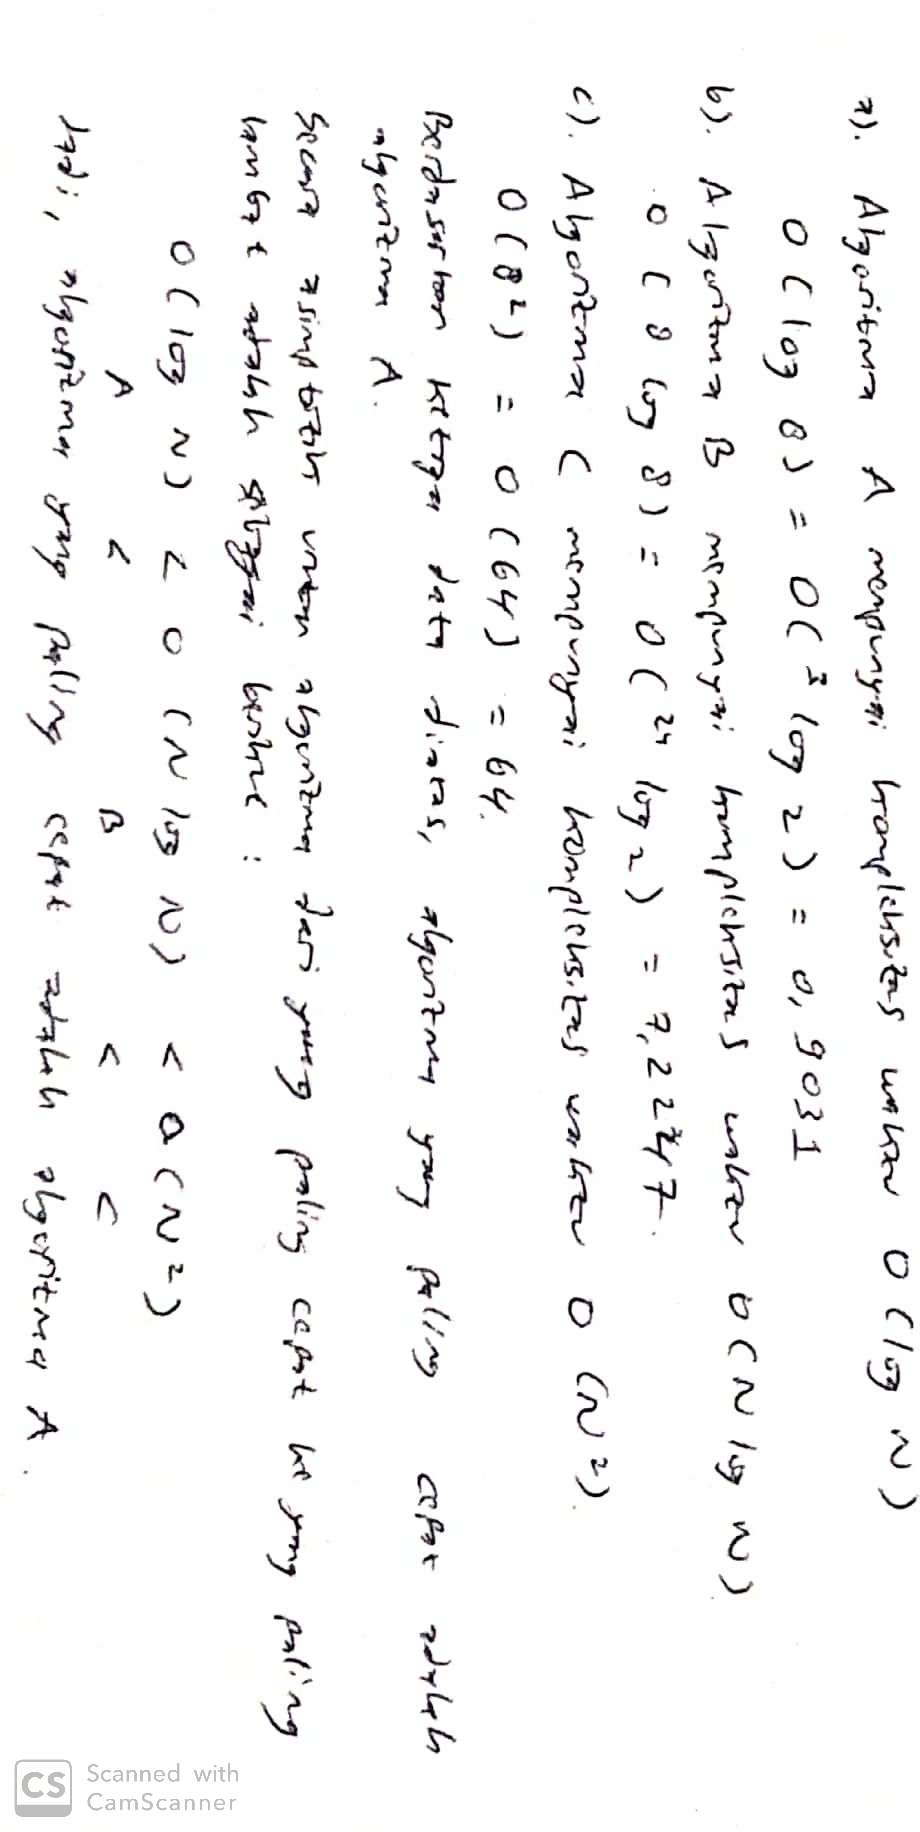 a). Algoritma A mempunyai kompleksitas waktu O (log N)
O (log 8) = O (3 log 2) = 0,9031
b). Algoritma B mempunyai kompleksitas waktu O (N log N)
O (8 log 8) = O (24 log 2) = 7,2247.
c). Algoritma C mempunyai kompleksitas waktu O (N²).
O (8²) = O (64) = 64.
Berdasarkan ketiga data diatas, algoritma yang paling cepat adalah
algoritma A.
Secara asimptotik urutan algoritma dari yang paling cepat ke yang paling
lambat adalah sebagai berikut :
O (log N) < O (N log N) < O (N²)
A < B < C
Jadi, algoritma yang paling cepat adalah algoritma A.
CS Scanned with
CamScanner